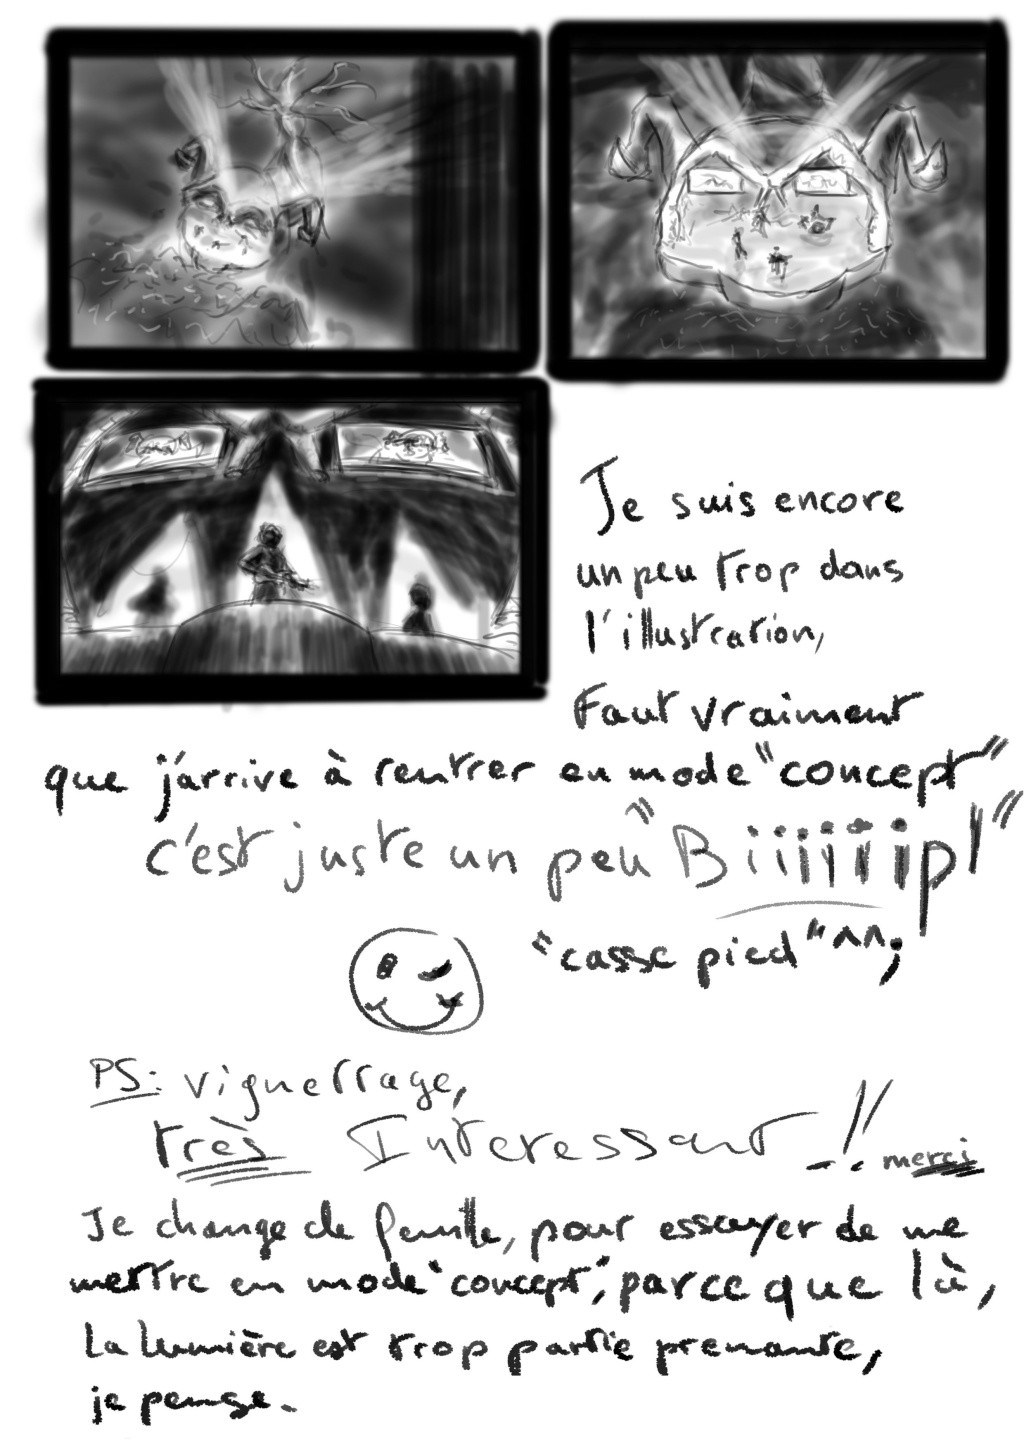 Je suis encore
un peu trop dans
l'illustration,
Faut vraiment
que j'arrive à rentrer en mode "concept"
c'est juste un peu "Biiiiiip!"
"casse pied" ^^;
PS: vignettage,
très Interessant !!
merci
Je change de feuille, pour essayer de me
mettre en mode "concept", parce que là,
la lumière est trop partie prenante,
je pense.